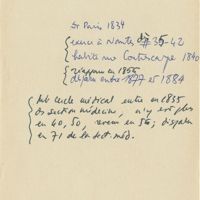 Dr Paris 1834
exerce à Nantes 35-42
habite rue Contrescarpe 1840
réapparu en 1866
disparu entre 1877 et 1884
cercle médical entre en 1835
section médecine, n'y est plus
en 40, 50, revenu en 56; disparu
en 71 de la sect. méd.